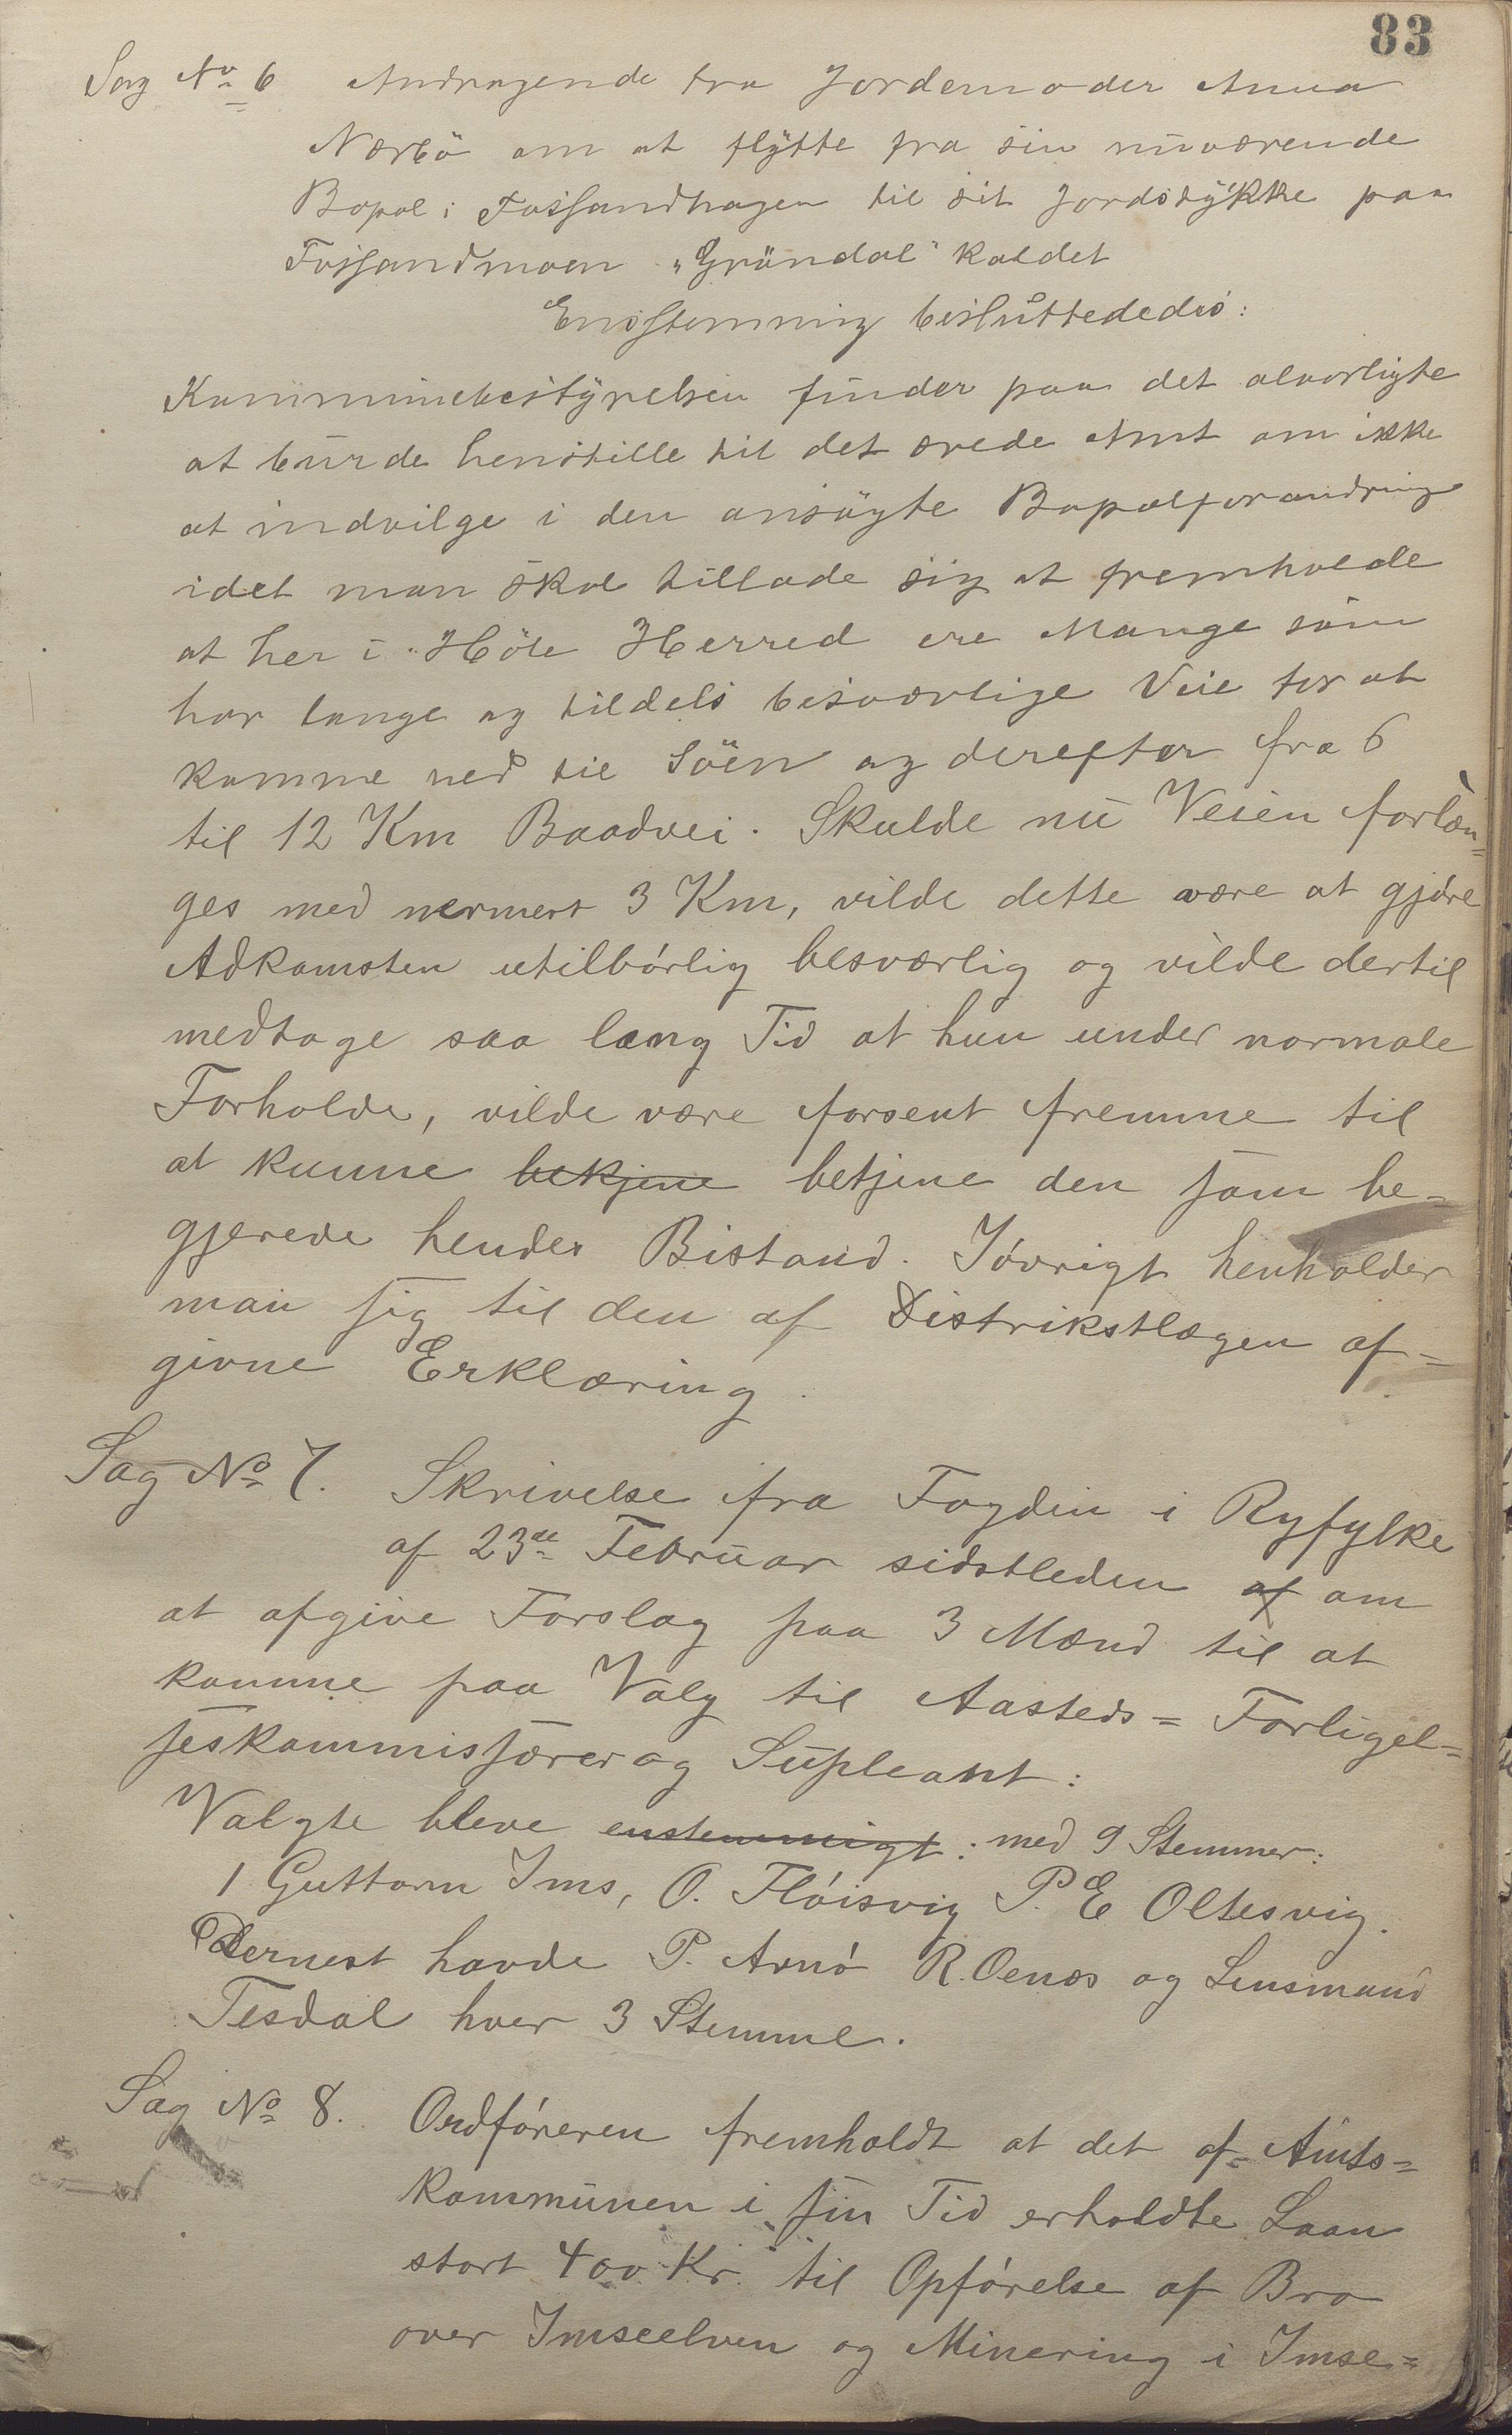 83
Sag No 6 Andragende fra Jordemoder Anna
Nærbö om at flÿtte fra sin nuværende
Bopal i Fossandhagen til sit Jordstÿkke paa
Fossandmoen "Gröndal" kaldet
Enstemmig besluttededes:
Kommunebestÿrelsen finder paa det alvorligte
at burde henstille til det ærede Amt om ikke
at indvilge i den ansögte Bopælforandring
idet man skal tillade sig at fremholde
at her i Höle Herred ere Mange som
har lange og tildels besværlige Veie for at
komme ned til Söen og derefter fra 6
til 12 Km Baadvei. Skulde nu Veien forlæn=
ges med nermert 3 Km, vilde dette være at gjóre
Adkomsten utilbórlig besværlig og vilde dertil
medtage saa lang Tid at hun under normale
Forholde, vilde være forsent fremme til
at kunne bekjene betjene den som be=
gjerede hendes Bistand. Ióvrigt henholder
man sig til den af Distrikstlægen af=
givne Erklæring.
Sag No 7. Skrivelse fra Fogden i Ryfylke
af 23de Februar sidstleden af om
at afgive Forslag paa 3 Mænd til at
komme paa Valg til Aasteds= Forligel=
seskommissærer og Supleant:
Valgte bleve enstemmigt: med 9 Stemmer:
1 Guttorm Ims, O. Flóisvig P. E Oltesvig.
Dernest havde P. Arnó R. Oenæs og Lensmand
Tesdal hver 3 Stemme.
Sag No 8. Ordfóreren fremholdt at det af Amts=
kommunen i sin Tid erholdte Laan
stort 400 Kr. til Opfórelse af Bro
over Imseelven og Minering i Imse=